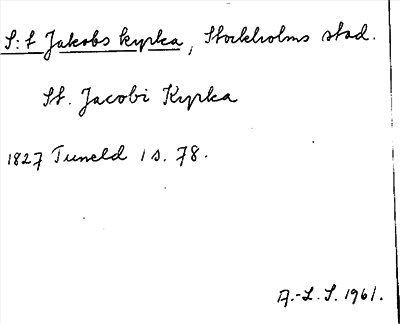 S:t Jakobs kyrka, Stockholms stad.
St. Jacobi Kyrka
1827 Tuneld 1 s. 78.
A.-L. S. 1961.